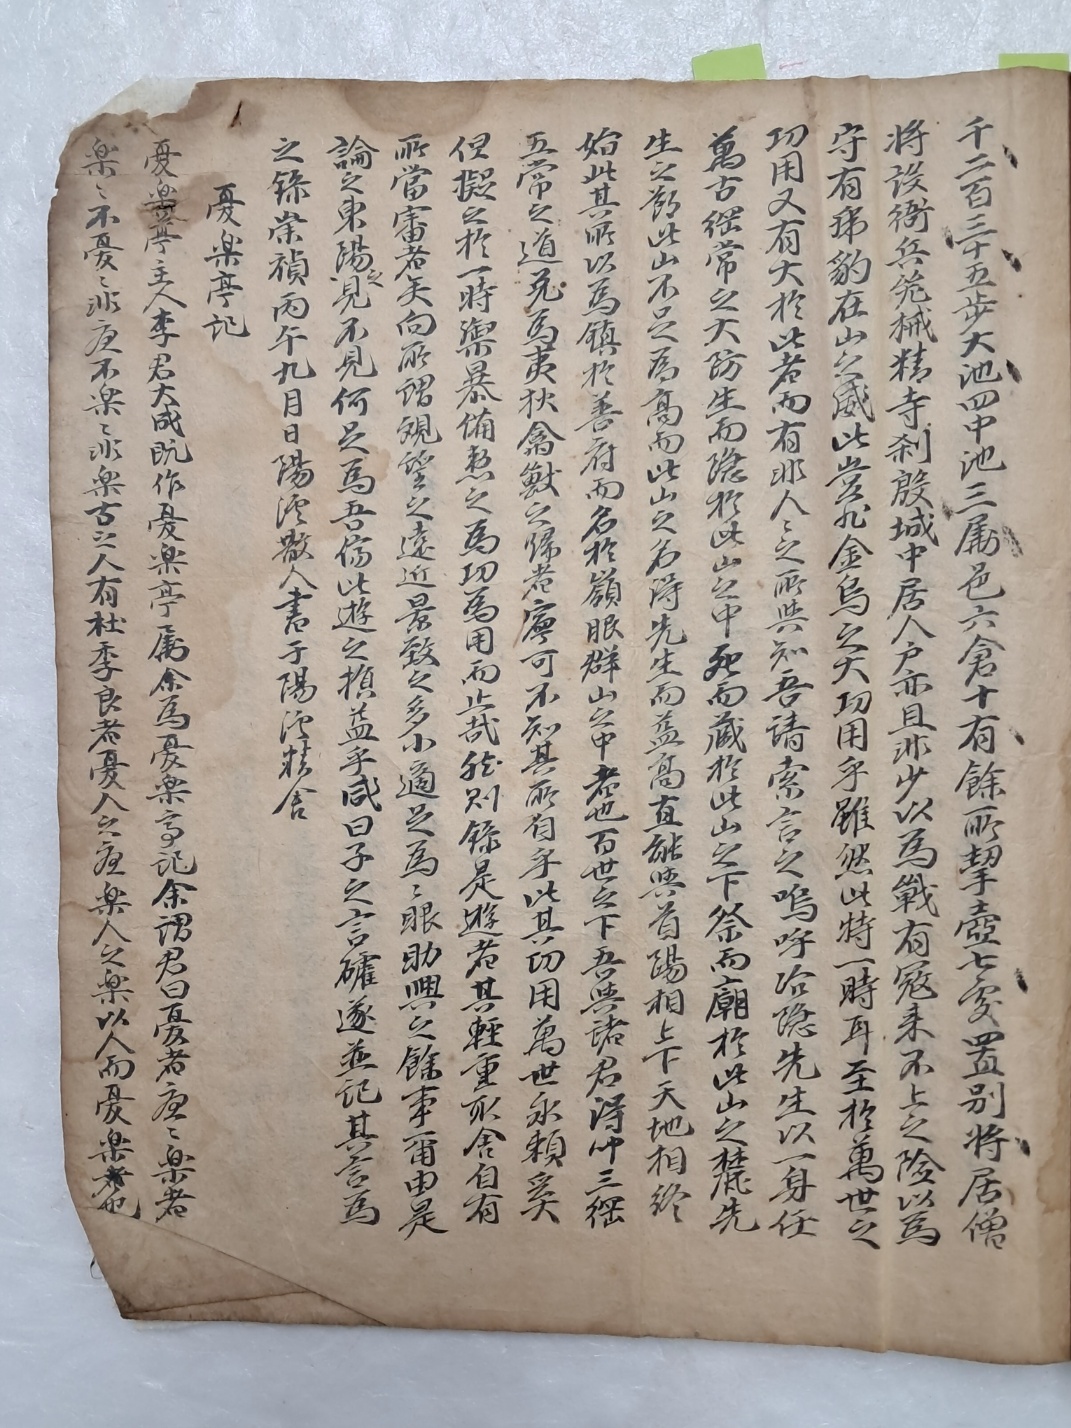 千二百三十五步大池四中池三属邑六倉十有餘所挈壺七處置別將居僧
將設衙兵兇械精寺刹殷城中居人戶亦且非少以為戰有寇來不上之險以為
守有琲豹在山之威此豈非金烏之大功用乎雖然此特一時耳至於萬世之
功用又有大於此者而有非人〻之所與知吾請索言之嗚呼冶隱先生以一身任
萬古綱常之大防生而隱於此山之中死而藏於此山之下祭而廟於此山之麓先
生之前此山不足為高而此山之名得先生而益高直能與首陽相上下天地相終
始此其所以為鎮於善府而名於嶺眼群山之中者也百世之下吾與諸君得卄三綱
五常之道免為夷狄禽獸之歸者寧可不知其所自乎此其功用萬世永賴奚
但擬之於一時禦暴備患之為功為用而止哉然則錄是遊者其輕重取舍自有
所當審者矣向所謂覌望之遠近景致之多小適足為〻眼助興之餘事爾由是
論之東陽之見不見何足為吾儕此遊之損益乎咸曰子之言確遂並記其言為
之錄崇禎丙午九月日陽溪散人書于陽溪精舍
憂樂亭記
憂樂亭主人李君大成既作憂樂亭属余為憂樂亭記余謂君曰憂者庶〻樂者
樂〻不憂〻非庶不樂〻非樂古之人有杜季良者憂人之庶樂人之樂以人而憂樂者也